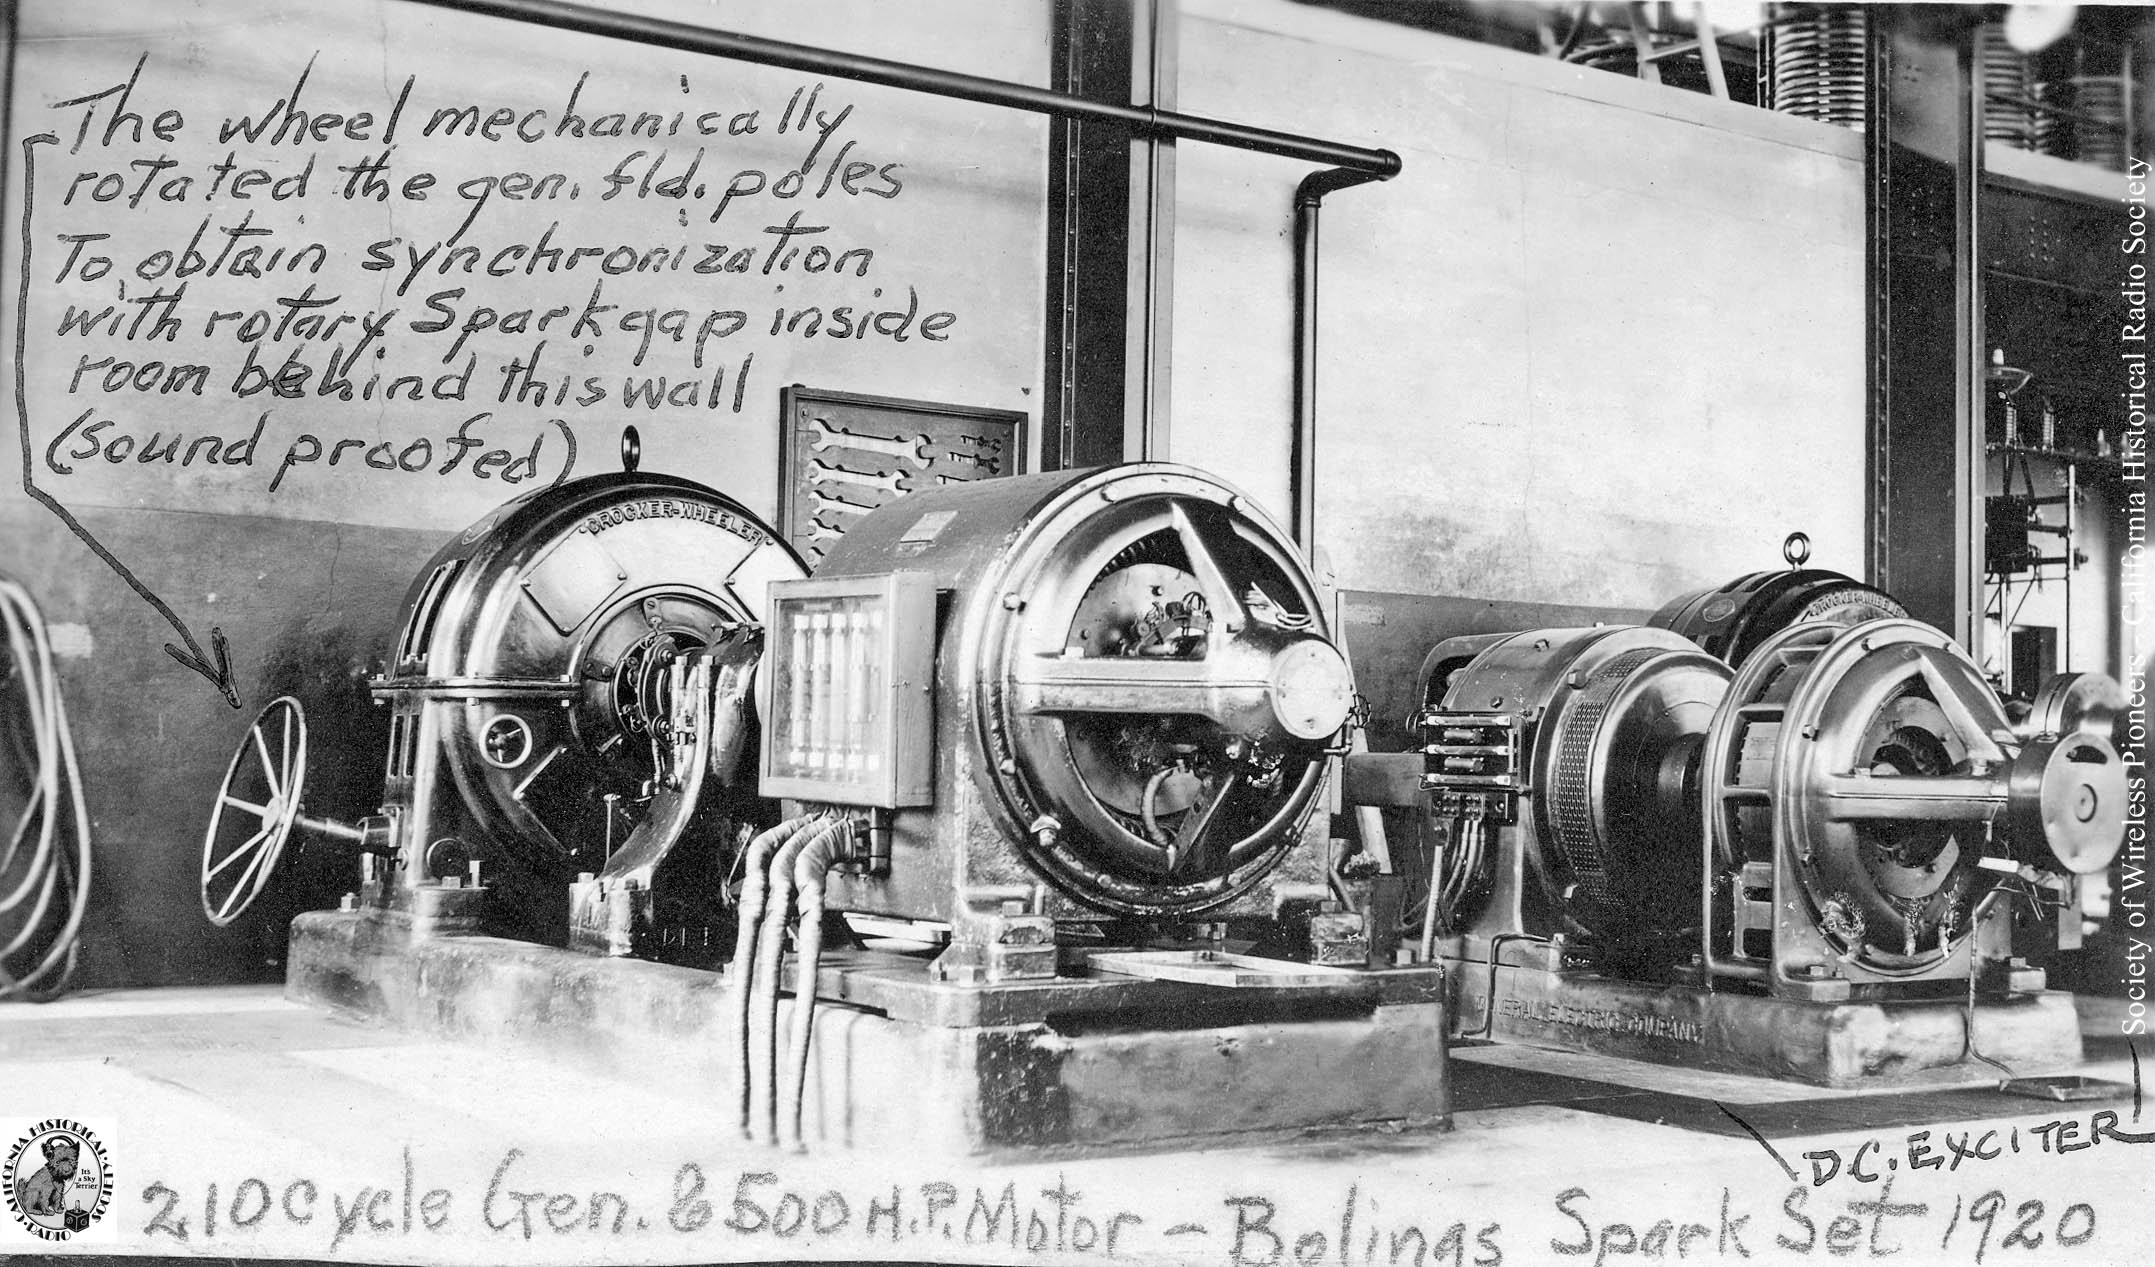 The wheel mechanically
rotated the gen. fld. poles
To obtain synchronization
with rotary Spark gap inside
room behind this wall
(sound proofed)
CROCKER-WHEELER
CROCKER-WHEELER
GENERAL ELECTRIC COMPANY
D.C. EXCITER
210 Cycle Gen. & 500 H.P. Motor - Bolinas Spark Set 1920
Society of Wireless Pioneers - California Historical Radio Society
CALIFORNIA HISTORICAL RADIO SOCIETY
It's
a Sky
Terrier